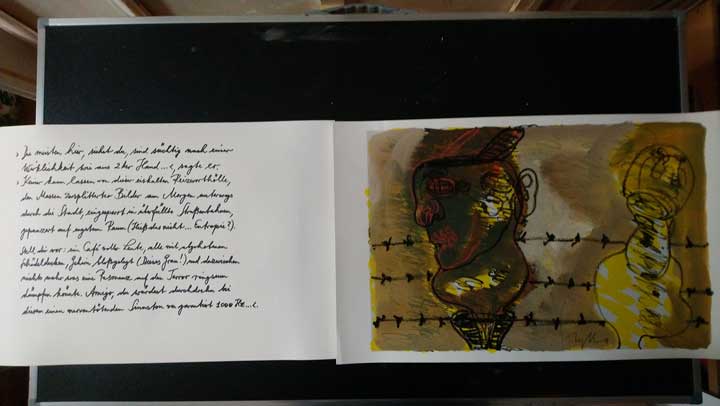 › Die meisten hier, siehst du, sind süchtig nach einer
Wirklichkeit wie aus 2ter Hand...‹, sagte er.
› Kann kaum lassen von dieser eiskalten Reizworthölle,
den Massen zersplitterter Bilder am Morgen unterwegs
durch die Stadt, eingesperrt in überfüllte Straßenbahnen,
gepanzert auf engstem Raum (Heißt das nicht... Entropie?).
Stell dir vor: ein Café voller Leute, alle mit abgehobenen
Schädeldecken, Gehirn bloßgelegt (Dieses Grau!) und dazwischen
nichts mehr was eine Resonanz auf den Terror ringsum
dämpfen könnte. Amigo, du würdest durchdrehn bei
diesem einen nervtötenden Sinuston von garantiert 1000 Hz...‹.